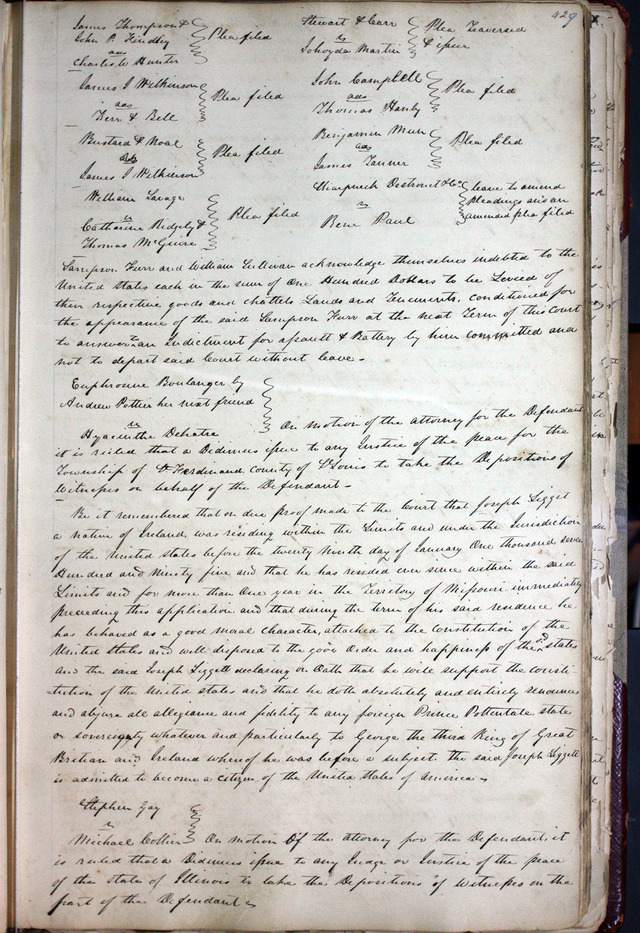 429
James Thompson &
John P. Findley
ads
Charles W Hunter
Plea filed
Stewart & Carr
vs
Martin
Plea Traversed
& issue
James J Wilkinson
ads
Kerr & Bell
Plea filed
John Campbell
ads
Thomas Hanly
Plea filed
Bustard & Noal
ads
James J Wilkinson
Plea filed
Benjamin
ads
James Tanner
Plea filed
William Savage
vs
Catharine Ridgely &
Thomas McGuire
Plea filed
& Co
vs
Rene Paul
leave to amend
Pleadings and an
amended plea filed
Sampson Kerr and William Sullivan acknowledge themselves indebted to the
United States each in the sum of One Hundred Dollars to be Levied of
their respective goods and chattels Lands and Tenements, conditioned for
the appearance of the said Sampson Kerr at the next Term of this Court
to answer to an Indictment for assault & Battery by him committed and
not to depart said Court without leave -
Euphrosine Boulanger by
Andrew Pottier her next friend
vs
Hyacinthe Dehatre
On motion of the attorney for the Defendant
it is ruled that a Dedimus issue to any Justice of the peace for the
Township of St Ferdinand County of St Louis to take the Depositions of
Witnesses on behalf of the Defendant -
Be it remembered that on due proof made to the Court that Joseph Liggett
a native of Ireland, was residing within the Limits and under the Jurisdiction
of the United States before the twenty Ninth day of January One thousand seven
Hundred and Ninety five and that he has resided ever since within the said
Limits and for more than One year in the Territory of Missouri immediately
preceeding this application and that during the term of his said residence he
has behaved as a good moral character, attached to the Constitution of the
United States and well disposed to the good order and happiness of the sd states
and the said Joseph Liggett declaring on Oath that he will support the consti-
tution of the United States and that he doth absolutely and entirely renounce
and abjure all allegiance and fidelity to any foreign Prince Pottentate state
or sovereignty whatever and particularly to George the third King of Great
Britian and Ireland whereof he was before a subject. The said Joseph Liggett
is admitted to become a citizen of the United States of america -
Stephen Gay
vs
Michael Collier
On motion Of the attorney for the Defendant, it
is ruled that a Dedimus issue to any Judge or Justice of the peace
of the state of Illinois to take the Depositions of Witnesses on the
part of the Defendant -